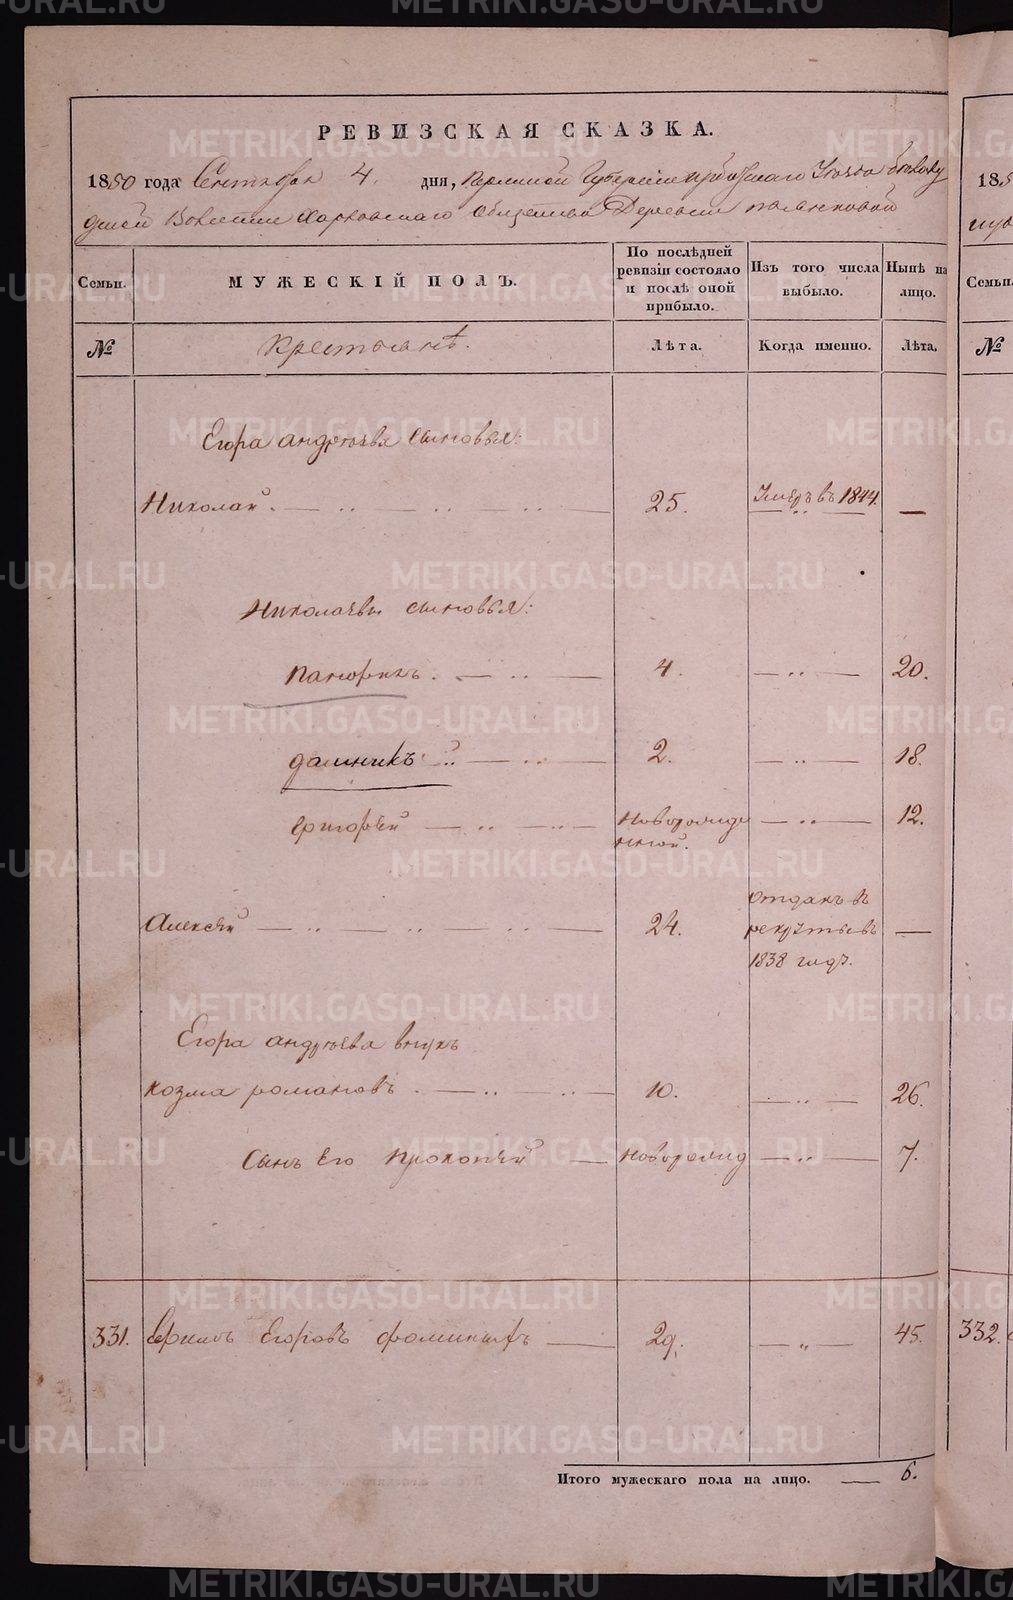 РЕВИЗСКАЯ СКАЗКА.
1850 года Сентября 4. дня, Пермской Губернии Ирбитскаго Уезда
Волости Харловскаго Деревни
Семьи. МУЖЕСКІЙ ПОЛЪ. По послѣдней ревизіи состояло и послѣ оной прибыло. Изъ того числа выбыло. Нынѣ на лицо.
№ Крестьянѣ. Лѣта. Когда именно. Лѣта.
Егора андреева сыновья:
Николай. 25. Умеръ въ 1844. —
Николаевы сыновья:
4. 20.
2. 18.
григорей Новорожде нной. 12.
Алексей 24. отданъ в рекруты въ 1838 годѣ. —
Егора андреева внукъ
козма романовъ 10. 26.
Сынъ его прокопей Новорожд 7.
331. Ефимъ Егоровъ фоминыхъ 29. 45.
Итого мужескаго пола на лицо. — 6.
185
Семьи.
№
332.
METRIKI.GASO-URAL.RU